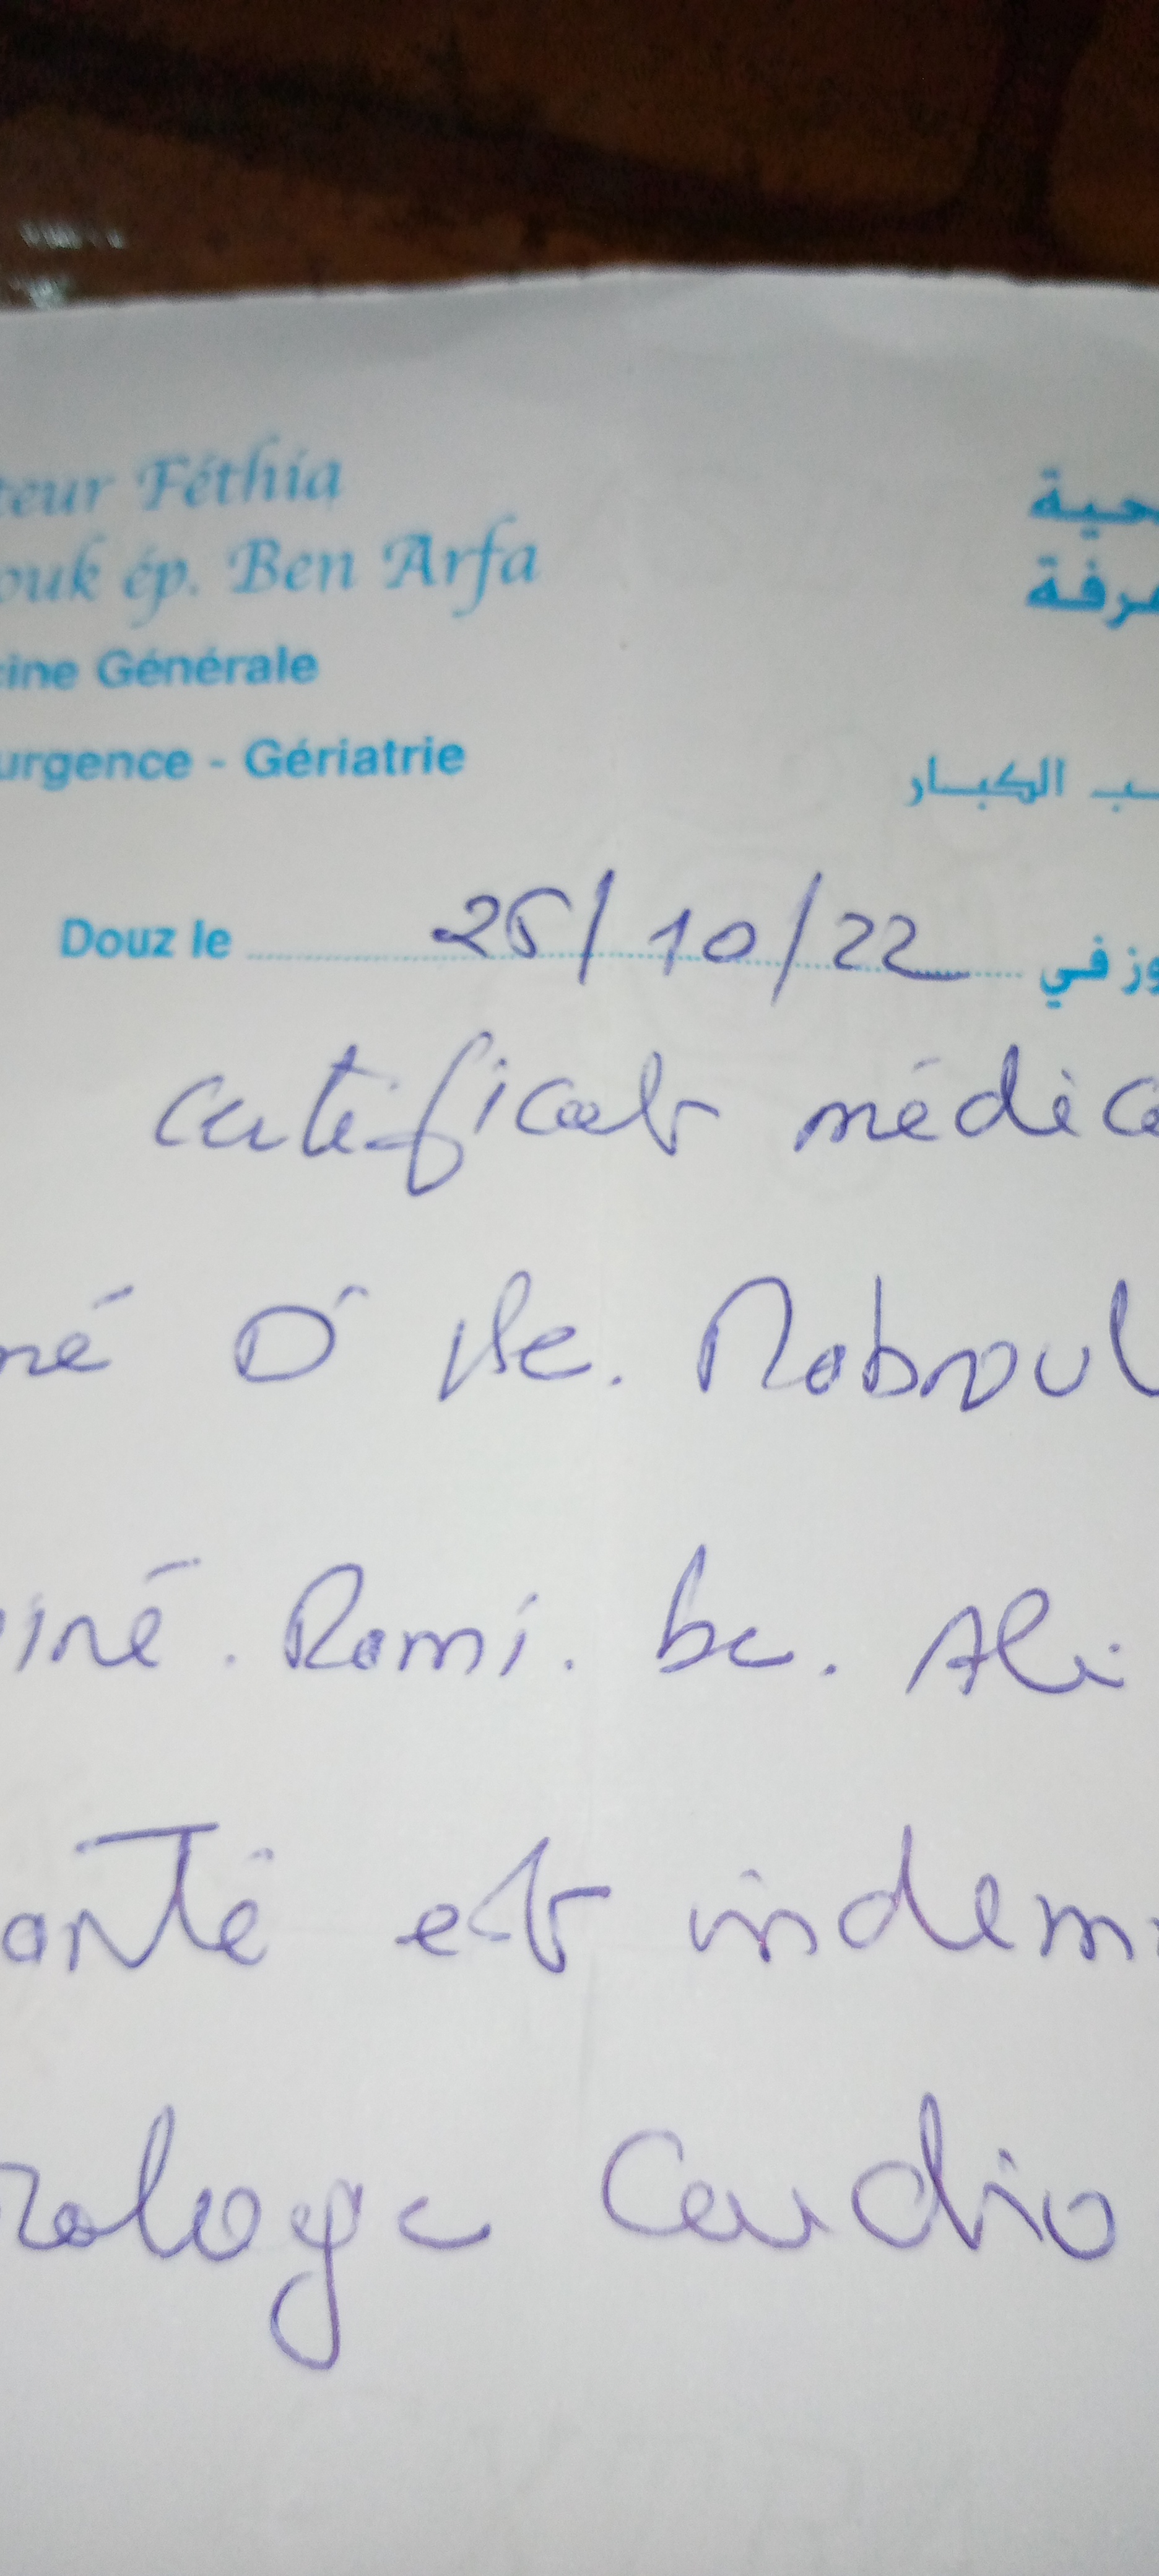 teur Féthia
ouk ép. Ben Arfa
cine Générale
urgence - Gériatrie
حية
عرفة
ـب الكبار
Douz le 25/10/22 وز في
certificat médica
né Dr Mabrouk
iné. Rami. be. Ali
anté est indem
rologe Cardio